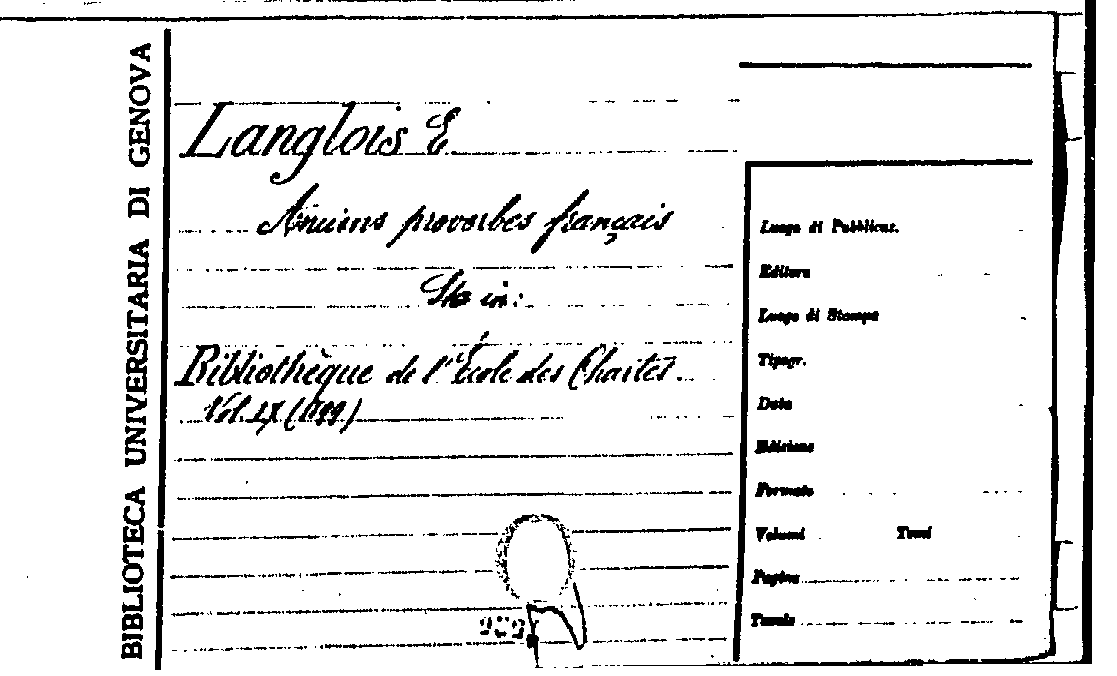 BIBLIOTECA UNIVERSITARIA DI GENOVA
Langlois E
Anciens proverbes français
Sta in:
Bibliothèque de l'École des Chartes.
Vol. LX (1899)
Luogo di Pubblicaz.
Editore
Luogo di Stampa
Tipogr.
Data
Edizione
Formato
Volumi Tomi
Pagine
Tavole